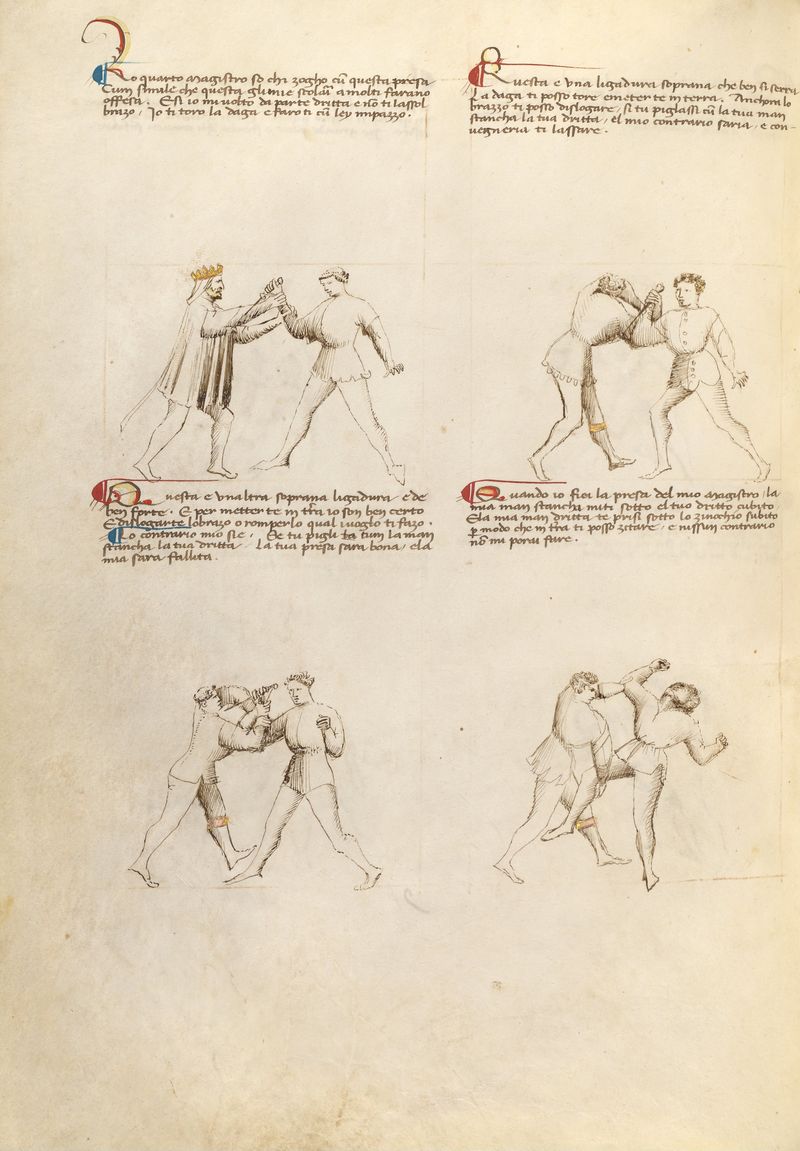 Lo quarto magistro so chi zogho cũ questa presa
Cum simile che questa gli miei scolari a molti farano
offesa. E si io mi volto da parte dritta e nõ ti lassol
brazo, Io ti toro la daga e faroti cũ ley impazzo.
Questa e una ligadura soprana che ben si serra
La daga ti posso tore e meterte in terra. Anchora lo
brazzo ti posso dislogare, si tu piglassi cũ la tua man
stancha la tua dritta, el mio contrario saria, e con-
vegneria ti lassare.
Questa e unaltra soprana ligadura e de
ben forte. E per metter te in tr̃a io son ben certo
E dislogarte lo brazo o romperlo qual i voglo ti fazo.
Lo contrario mio sie, Se tu pigli cum la man
stancha la tua dritta La tua presa sara bona, e la
mia sara fallita.
Quando io fiei la presa del mio magistro, la
mia man stancha miti sotto el tuo dritto cubito
E la mia man dritta te prisi sotto lo zinochio subito
ꝑ modo che in tr̃a ti posso zetare, e nissun contrario
nõ mi porai fare.